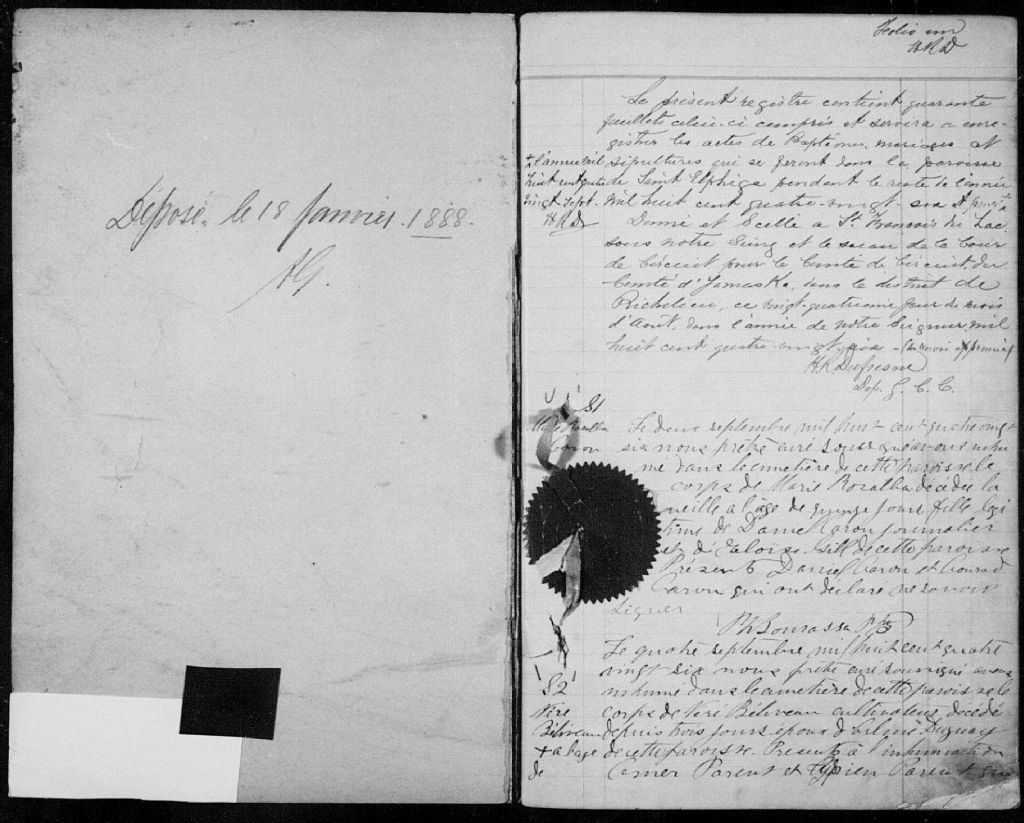 Déposé le 18 Janvier 1888.
AG.
Folio un
HRD
Le présent registre contient quarante
feuillets celui-ci compris et servira a enre-
gistrer les actes de Baptêmes, mariages et
sépultures qui se feront dans la paroisse
de Saint Elphège pendant le reste de l'année
mil huit cent quatre-vingt-six
+ l'année mil
huit cent quatre
vingt-sept.
HRD
Donné et Scellé a St François du Lac
sous notre Seing et le sceau de la Cour
de Circuit pour le Comté de Circuit du
Comté d'Yamaska, dans le district de
Richelieu, ce vingt-quatrième jour du mois
d'Août, dans l'année de notre Seigneur mil
huit cent quatre-vingt-six
H R Dufresne
Dep. G. C. C.
S1
Marie Rosalba
Caron
Le deux septembre mil huit cent quatre vingt
six nous prêtre curé soussigné avons inhu
mé dans le cimetière de cette paroisse le
corps de Marie Rosalba décédée la
veille a l'âge de quinze jours fille légi
time de Daniel Caron journalier
et d'Eloise de cette paroisse
Présents Daniel Caron et Conrad
Caron qui ont déclaré ne savoir
signer
Ph Bourassa Ptre
S2
Néré
Béliveau
+ a l'age
de
Le quatre septembre mil huit cent quatre
vingt six nous prêtre curé soussigné avons
inhumé dans le cimetière de cette paroisse le
corps de Néré Béliveau cultivateur décédé
depuis trois jours époux d'
de cette paroisse. Présents à l'inhumation
Omer Parent et Cyprien Parent qui